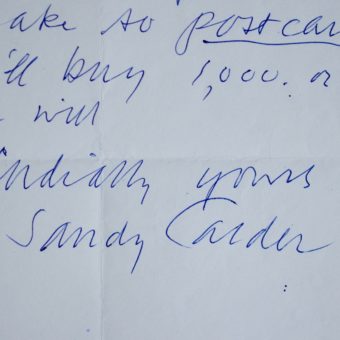 ake so postcar
'll buy 1,000. or
will
ndially yours
Sandy Calder